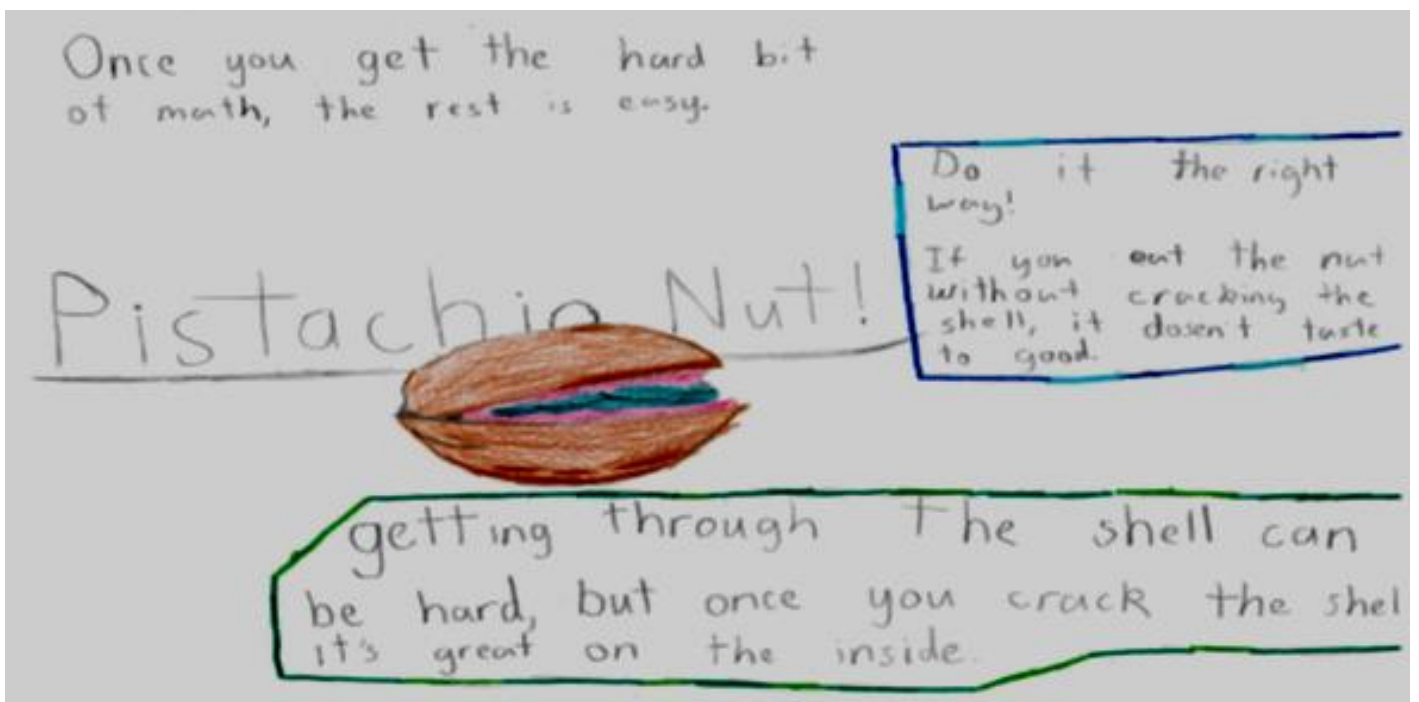 Once you get the hard bit
of math, the rest is easy.
Do it the right
way!
If you eat the nut
without cracking the
shell, it dosen't taste
to good.
Pistachio Nut!
getting through the shell can
be hard, but once you crack the shel
it's great on the inside.